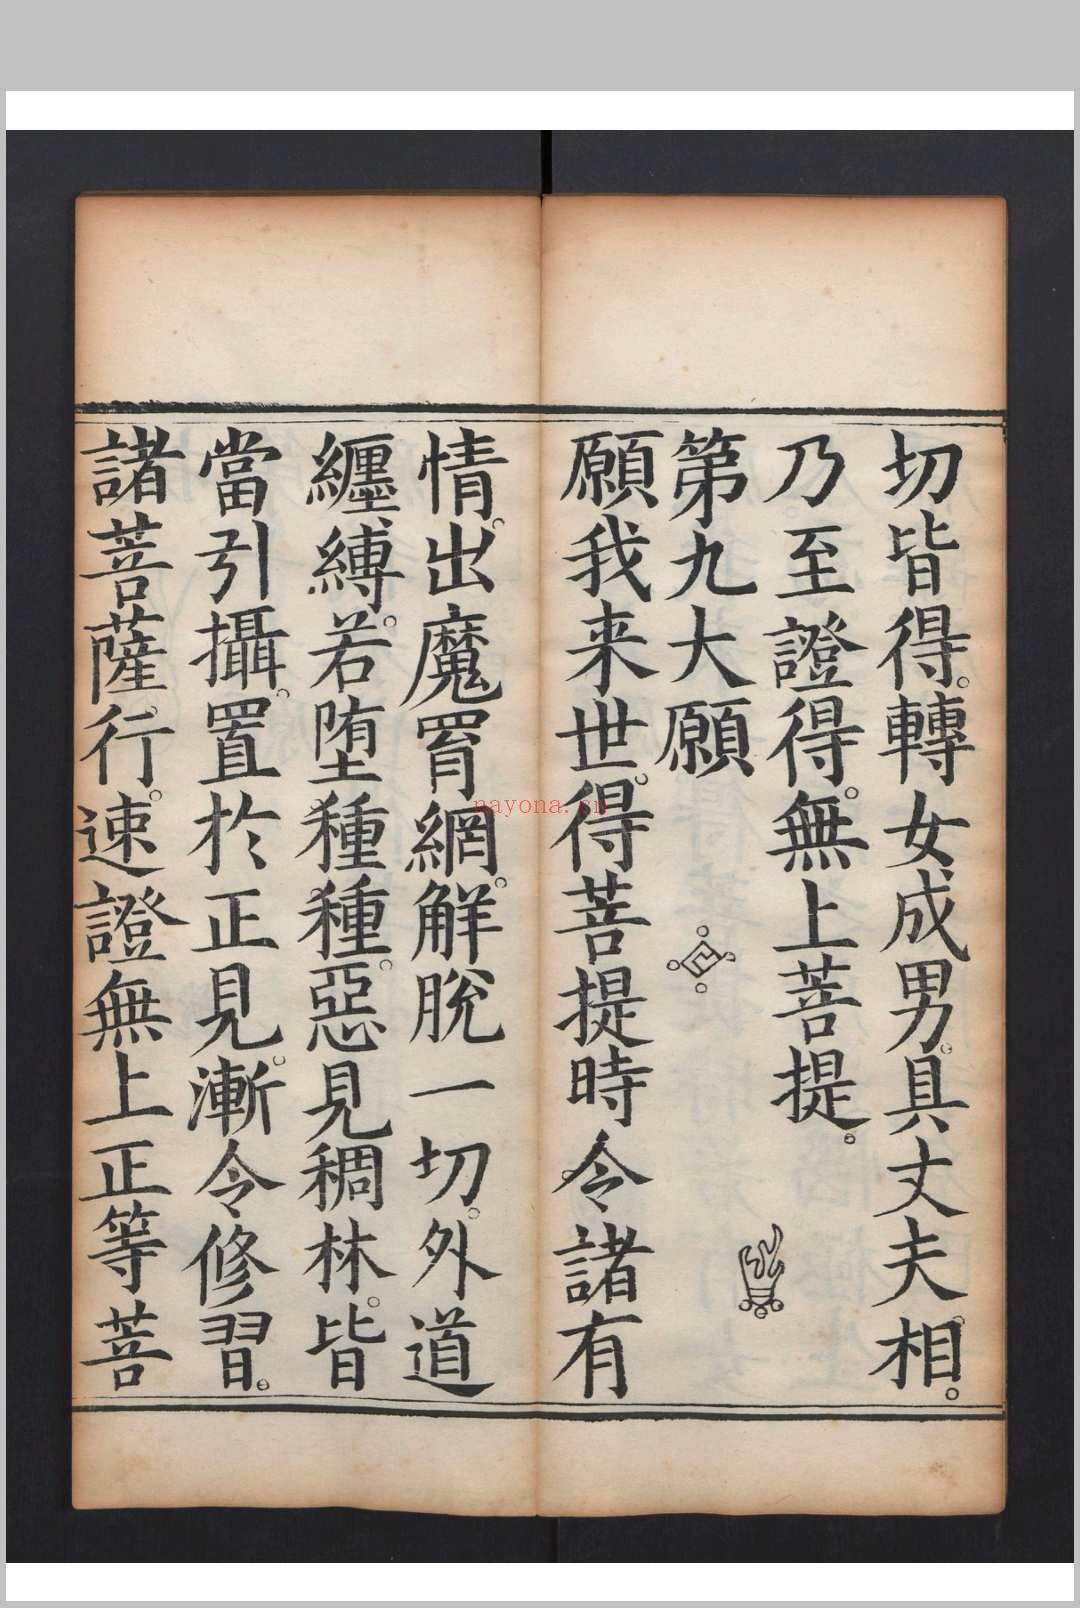 切皆得。轉女成男。具丈夫相。
乃至證得。無上菩提。
第九大願
願我来世。得菩提時。令諸有
情。出魔罥網。解脫一切。外道
纏縛。若堕種種。惡見稠林。皆
當引攝。置於正見。漸令修習。
諸菩薩行。速證無上正等菩
nayona.cn